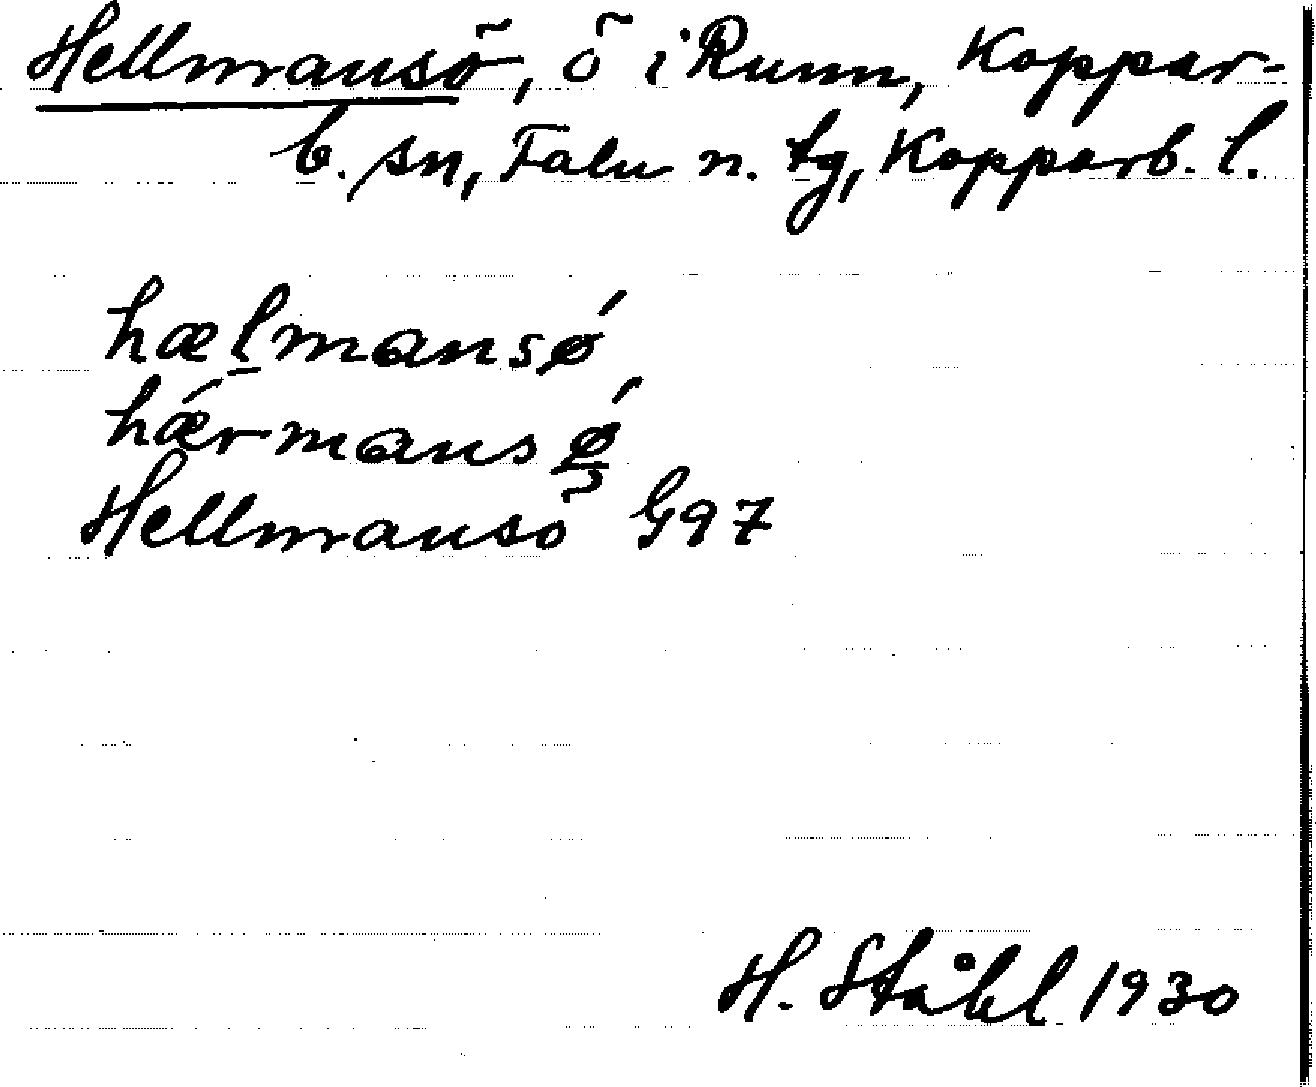 Hellmansö, ö i Runn, Koppar-
b. sn, Falu n. tg, Kopparb. l.
hælmansǿ
hǽrmansǿ
Hellmansö G97
H. Ståhl 1930